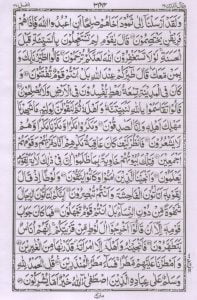 وَلَقَدْ اَرْسَلْنَاۤ اِلٰى ثَمُوْدَ اَخَاهُمْ صٰلِحًا اَنِ اعْبُدُوا اللّٰهَ فَاِذَا هُمْ
فَرِيْقٰنِ يَخْتَصِمُوْنَ قَالَ يٰقَوْمِ لِمَ تَسْتَعْجِلُوْنَ بِالسَّيِّئَةِ قَبْلَ
الْحَسَنَةِ لَوْلَا تَسْتَغْفِرُوْنَ اللّٰهَ لَعَلَّكُمْ تُرْحَمُوْنَ قَالُوا اطَّيَّرْنَا بِكَ وَ
بِمَنْ مَّعَكَ قَالَ طٰٓئِرُكُمْ عِنْدَ اللّٰهِ بَلْ اَنْتُمْ قَوْمٌ تُفْتَنُوْنَ وَ
كَانَ فِى الْمَدِيْنَةِ تِسْعَةُ رَهْطٍ يُّفْسِدُوْنَ فِى الْاَرْضِ وَلَا يُصْلِحُوْنَ
قَالُوْا تَقَاسَمُوْا بِاللّٰهِ لَنُبَيِّتَنَّهٗ وَاَهْلَهٗ ثُمَّ لَنَقُوْلَنَّ لِوَلِيِّهٖ مَا شَهِدْنَا
مَهْلِكَ اَهْلِهٖ وَاِنَّا لَصٰدِقُوْنَ وَمَكَرُوْا مَكْرًا وَّمَكَرْنَا مَكْرًا وَّهُمْ
لَا يَشْعُرُوْنَ فَانْظُرْ كَيْفَ كَانَ عَاقِبَةُ مَكْرِهِمْ اَنَّا دَمَّرْنٰهُمْ وَقَوْمَهُمْ
اَجْمَعِيْنَ فَتِلْكَ بُيُوْتُهُمْ خَاوِيَةً بِمَا ظَلَمُوْا اِنَّ فِيْ ذٰلِكَ لَاٰيَةً
لِّقَوْمٍ يَّعْلَمُوْنَ وَاَنْجَيْنَا الَّذِيْنَ اٰمَنُوْا وَكَانُوْا يَتَّقُوْنَ وَلُوْطًا اِذْ قَالَ
لِقَوْمِهٖۤ اَتَاْتُوْنَ الْفَاحِشَةَ وَاَنْتُمْ تُبْصِرُوْنَ اَئِنَّكُمْ لَتَاْتُوْنَ الرِّجَالَ
شَهْوَةً مِّنْ دُوْنِ النِّسَآءِ بَلْ اَنْتُمْ قَوْمٌ تَجْهَلُوْنَ فَمَا كَانَ جَوَابَ
قَوْمِهٖۤ اِلَّاۤ اَنْ قَالُوْۤا اَخْرِجُوْۤا اٰلَ لُوْطٍ مِّنْ قَرْيَتِكُمْ اِنَّهُمْ اُنَاسٌ
يَّتَطَهَّرُوْنَ فَاَنْجَيْنٰهُ وَاَهْلَهٗۤ اِلَّا امْرَاَتَهٗ قَدَّرْنٰهَا مِنَ الْغٰبِرِيْنَ
وَاَمْطَرْنَا عَلَيْهِمْ مَّطَرًا فَسَآءَ مَطَرُ الْمُنْذَرِيْنَ قُلِ الْحَمْدُ لِلّٰهِ
وَسَلٰمٌ عَلٰى عِبَادِهِ الَّذِيْنَ اصْطَفٰى آٰللّٰهُ خَيْرٌ اَمَّا يُشْرِكُوْنَ